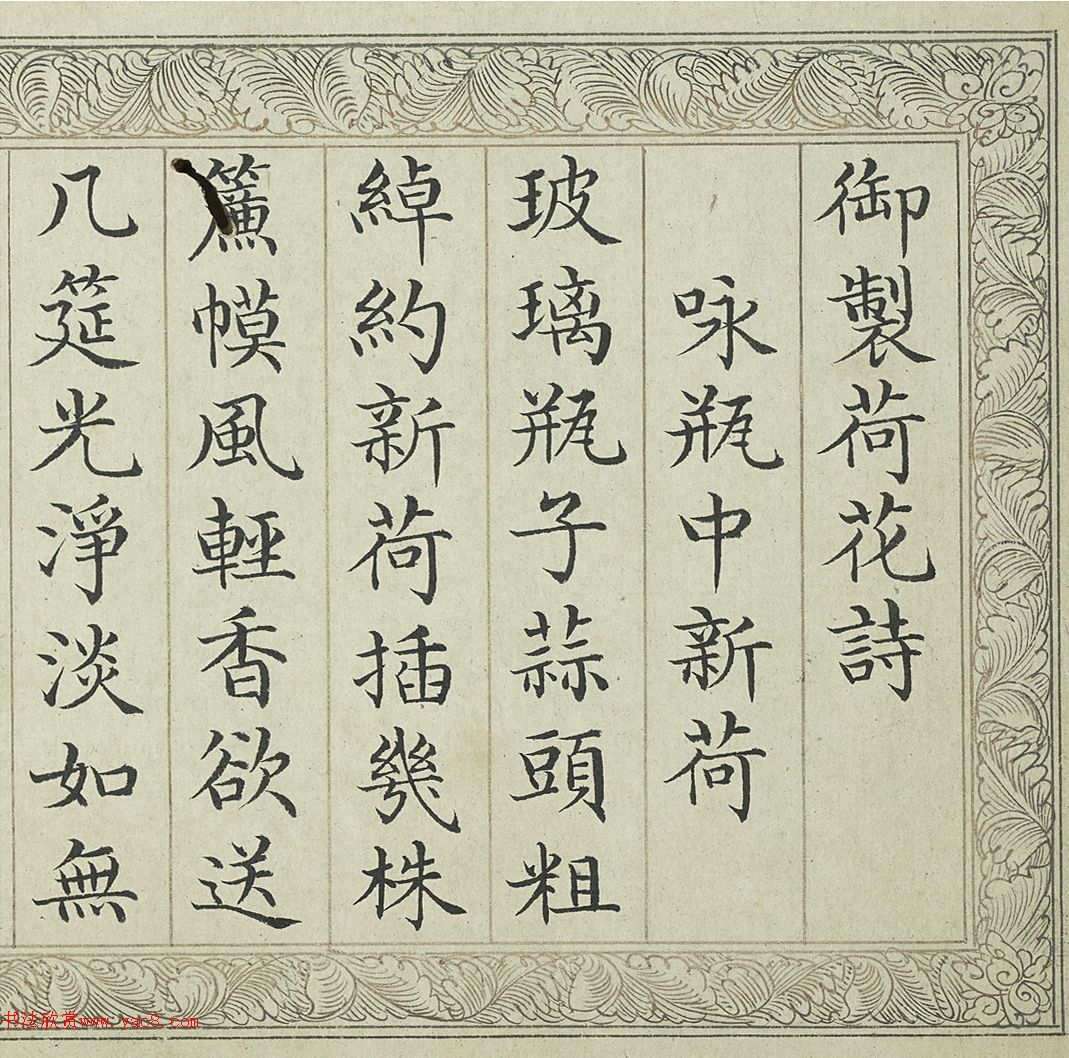 御製荷花詩
咏瓶中新荷
玻璃瓶子蒜頭粗
綽約新荷插幾株
簾幙風輕香欲送
几筵光淨淡如無
书法欣赏www.yac8.com